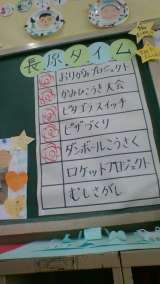 長原タイム
おりがみプロジェクト
かみひこうき大会
ピタゴラスイッチ
ピザづくり
ダンボールこうさく
ロケットプロジェクト
むしさがし